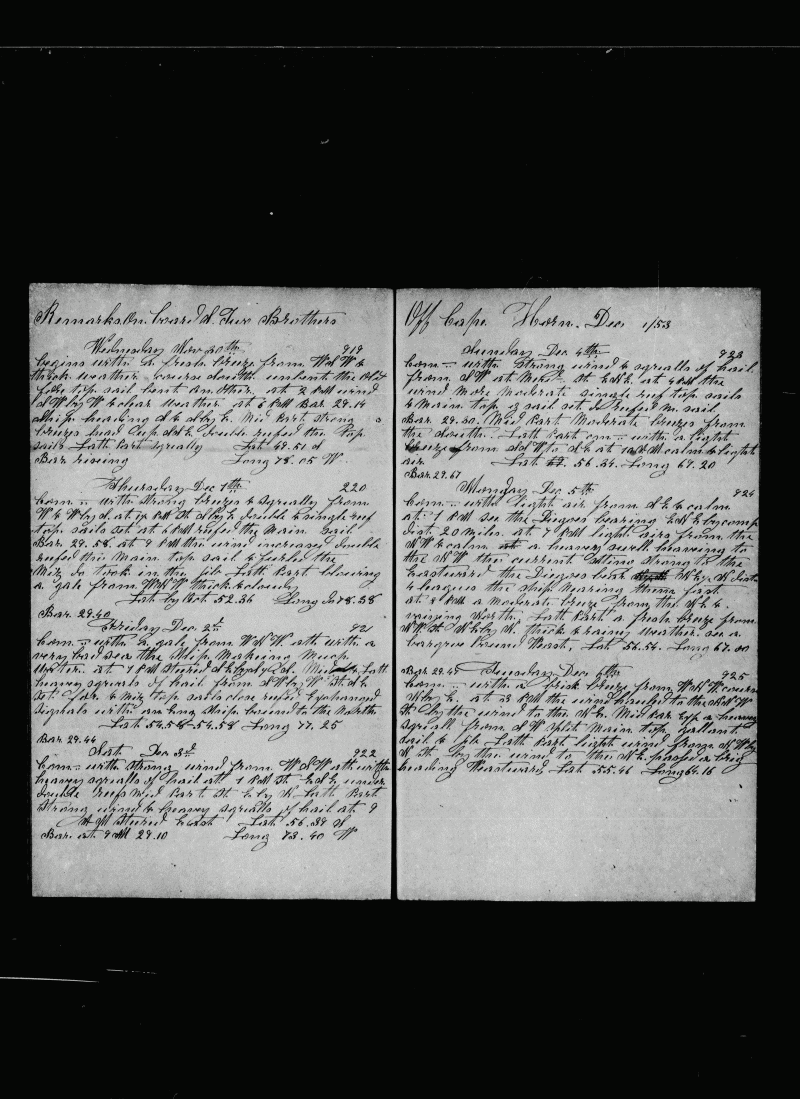 Remarks on board S. Two Brothers
Wednesday Nov 30th 919
begins with a fresh breeze from WSW &
thick weather course South unbent the old
fore top sail bent an other at 2 PM wind
SW by W & clear weather at 6 PM Bar 29.14
Ship heading SE & S by E. Mid Part strong
breezes head up SSE double reefed the Top
sails Latt Part squally Lat 49.51 S
Bar rising Long 78.05 W
Thursday Dec 1th 220
Com -- with strong breezes & squally from
W & W by S. at PM St S by E double & single reef
top sails set at 6 PM reefed the Main Sail
Bar. 29.58. at 9 PM the wind increased double
reefed the Main top sail & furled the
Miz do took in the jib Latt Part blowing
a gale from WNW thick & cloudy
Lat by Obs 52.36 Long In 78.38
Bar. 29.40
Friday Dec. 2d 921
Com -- with a gale from WNW. with a
very bad sea the Ship Makeing Much
Water. at 7 PM Steered SE by E Mid & Latt
heavy squals of hail from SW by W St SE
Set for & Miz top sails close reefed Exchanged
Signals with an Eng Ship bound to the North
Lat 54.58 54.58 Long 77.25
Bar 29.44
Sat. Dec 3d 922
Com -- with strong wind from WSW with
heavy squalls of hail att 1 PM St ESE under
double reefs Mid Part St E by N Latt Part
Strong wind & heavy squalls of hail at 9
AM Steered East Lat 56.39 S
Bar. at 9 AM 29.10 Long 73.40 W
Off Cape Horn. Dec 1853
Sunday Dec 4th 923
Com -- with Strong wind & squalls of hail
from SW at St ENE, at 4 PM the
wind More Moderate single reef top sails
& Main top g sail set & reefed M. sail
Bar 29.30. Mid Part Moderate breezes from
the South. Latt Part com -- with a light
breeze from SSW to SE at 10 AM calm & light
air Lat 56.34. Long 69.20
Bar. 29.67
Monday Dec 5th 924
Com -- with light air from SE & calm
at 1 PM see the Diegos bearing by comp
Dist 20 Miles. at 7 PM light airs from the
NW & calm a heavy swell heaving to
the NW the current setting strong to the
Eastward the Diegos bear N by W Dist
4 leagues the Ship Nearing them fast
at 8 PM a Moderate breeze from the N E &
varying North. Latt Part a fresh breeze from
NW St by N. thick & rainy weather see a
barque bound West, Lat 56.54. Long 67.00
Bar 29.47 Tuesday Dec 6th 925
Com -- with a brisk breeze from WNW course
N by E. at 3 PM the wind hauled to the NNW
St by the wind to the N E. Mid Par Exp a heavy
squall from SW split Main top gallant
sail & jib Latt Part light wind from N W by
N St by the wind to the NE passed a brig
heading Westward, Lat 55.46 Long 64.16